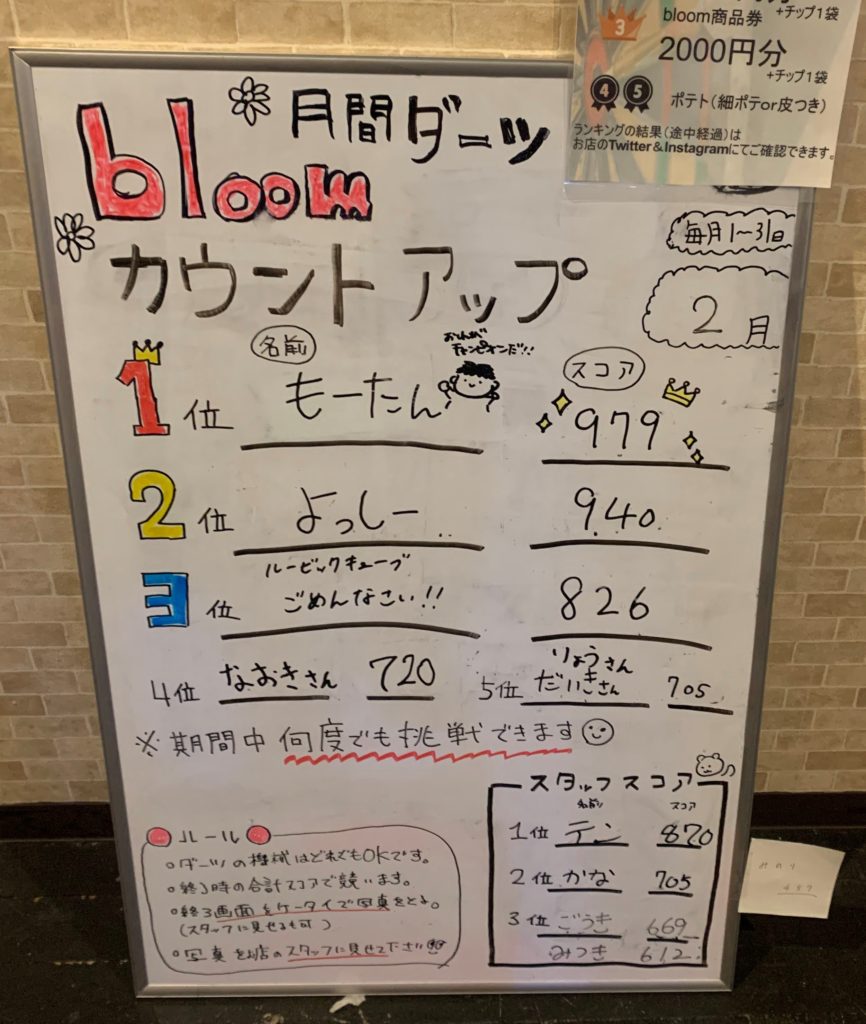 bloom商品券
+チップ1袋
3
2000円分
+チップ1袋
4 5 ポテト(細ポテor皮つき)
ランキングの結果(途中経過)は
お店のTwitter&Instagramにてご確認できます。
月間ダーツ
bloom
カウントアップ
毎月1〜31日
2月
名前
スコア
おれがチャンピオンだ!!
1位 もーたん 979
2位 よっしー 940
ルービックキューブ
3位 ごめんなさい!! 826
4位 なおきさん 720
りょうさん
5位 だいきさん 705
※期間中 何度でも挑戦できます
スタッフスコア
名前 スコア
1位 テン 870
2位 かな 705
3位 ごうき 669
みつき 612
ルール
○ダーツの機械はどれでもOKです。
○終了時の合計スコアで競います。
○終了画面をケータイで写真をとる。
(スタッフに見せるも可)
○写真をお店のスタッフに見せて下さい
みのり
487